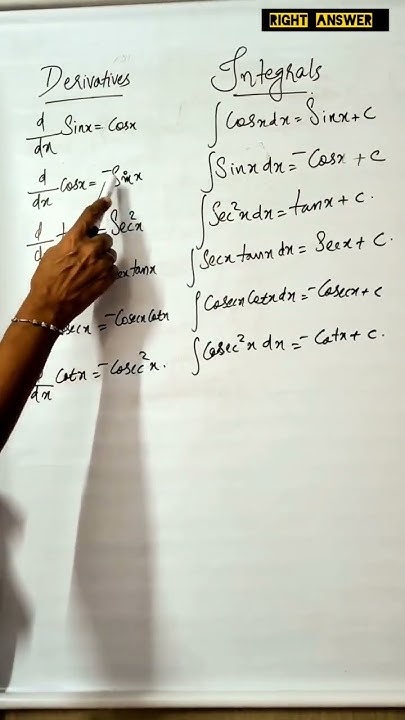 RIGHT ANSWER
Derivatives
d/dx Sinx = Cosx
d/dx Cosx = -Sinx
d/d = Sec²x
tanx
secx = -Cosecx Cotx
d/dx Cotx = -Cosec²x.
Integrals
∫Cosx dx = Sinx + C
∫Sinx dx = -Cosx + C
∫Sec²x dx = tanx + C.
∫Secx tanx dx = Secx + C.
∫Cosecx Cotx dx = -Cosecx + C
∫Cosec²x dx = -Cotx + C.